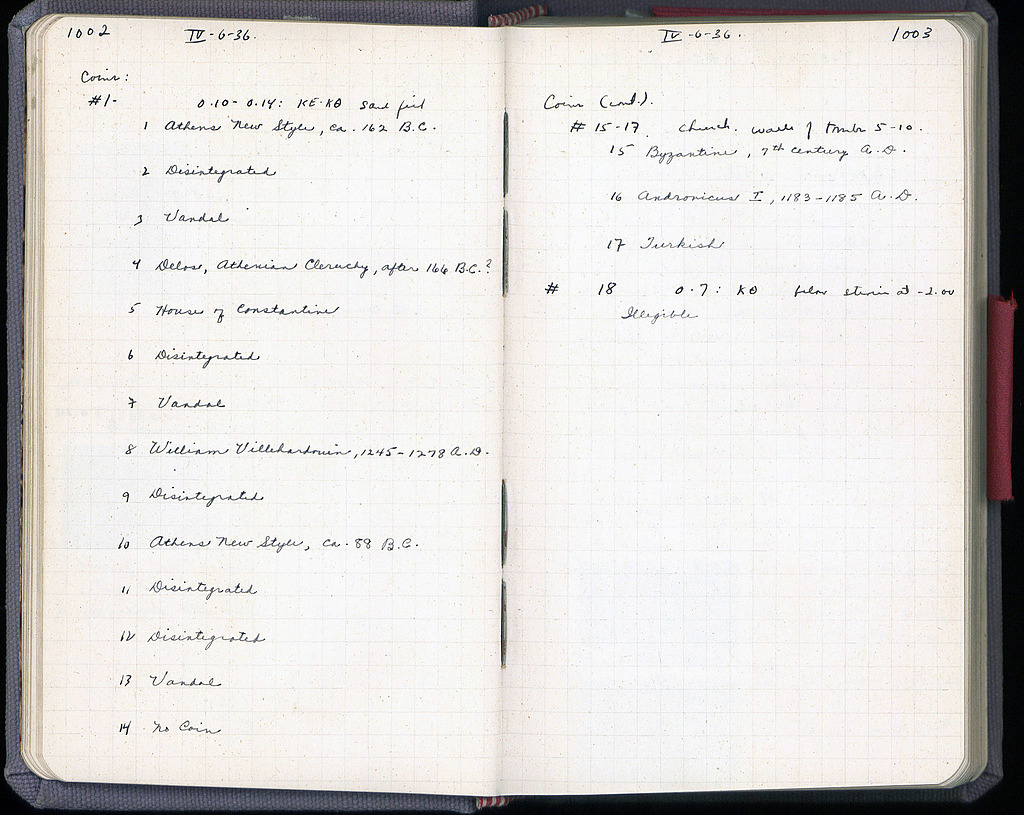 1002
IV-6-36.
Coins:
#1-
0.10-0.14: ΚΕ-ΚΘ sand fill
1 Athens New Style, ca. 162 B.C.
2 Disintegrated
3 Vandal
4 Delos, Athenian Cleruchy, after 166 B.C.?
5 House of Constantine
6 Disintegrated
7 Vandal
8 William Villehardouin, 1245-1278 A.D.
9 Disintegrated
10 Athens New Style, ca. 88 B.C.
11 Disintegrated
12 Disintegrated
13 Vandal
14 No Coin
IV-6-36.
1003
Coins (cont.).
#15-17. church. walls of tombs 5-10.
15 Byzantine, 7th century A.D.
16 Andronicus I, 1183-1185 A.D.
17 Turkish
# 18 0.7: ΚΘ below at -2.00
Illegible